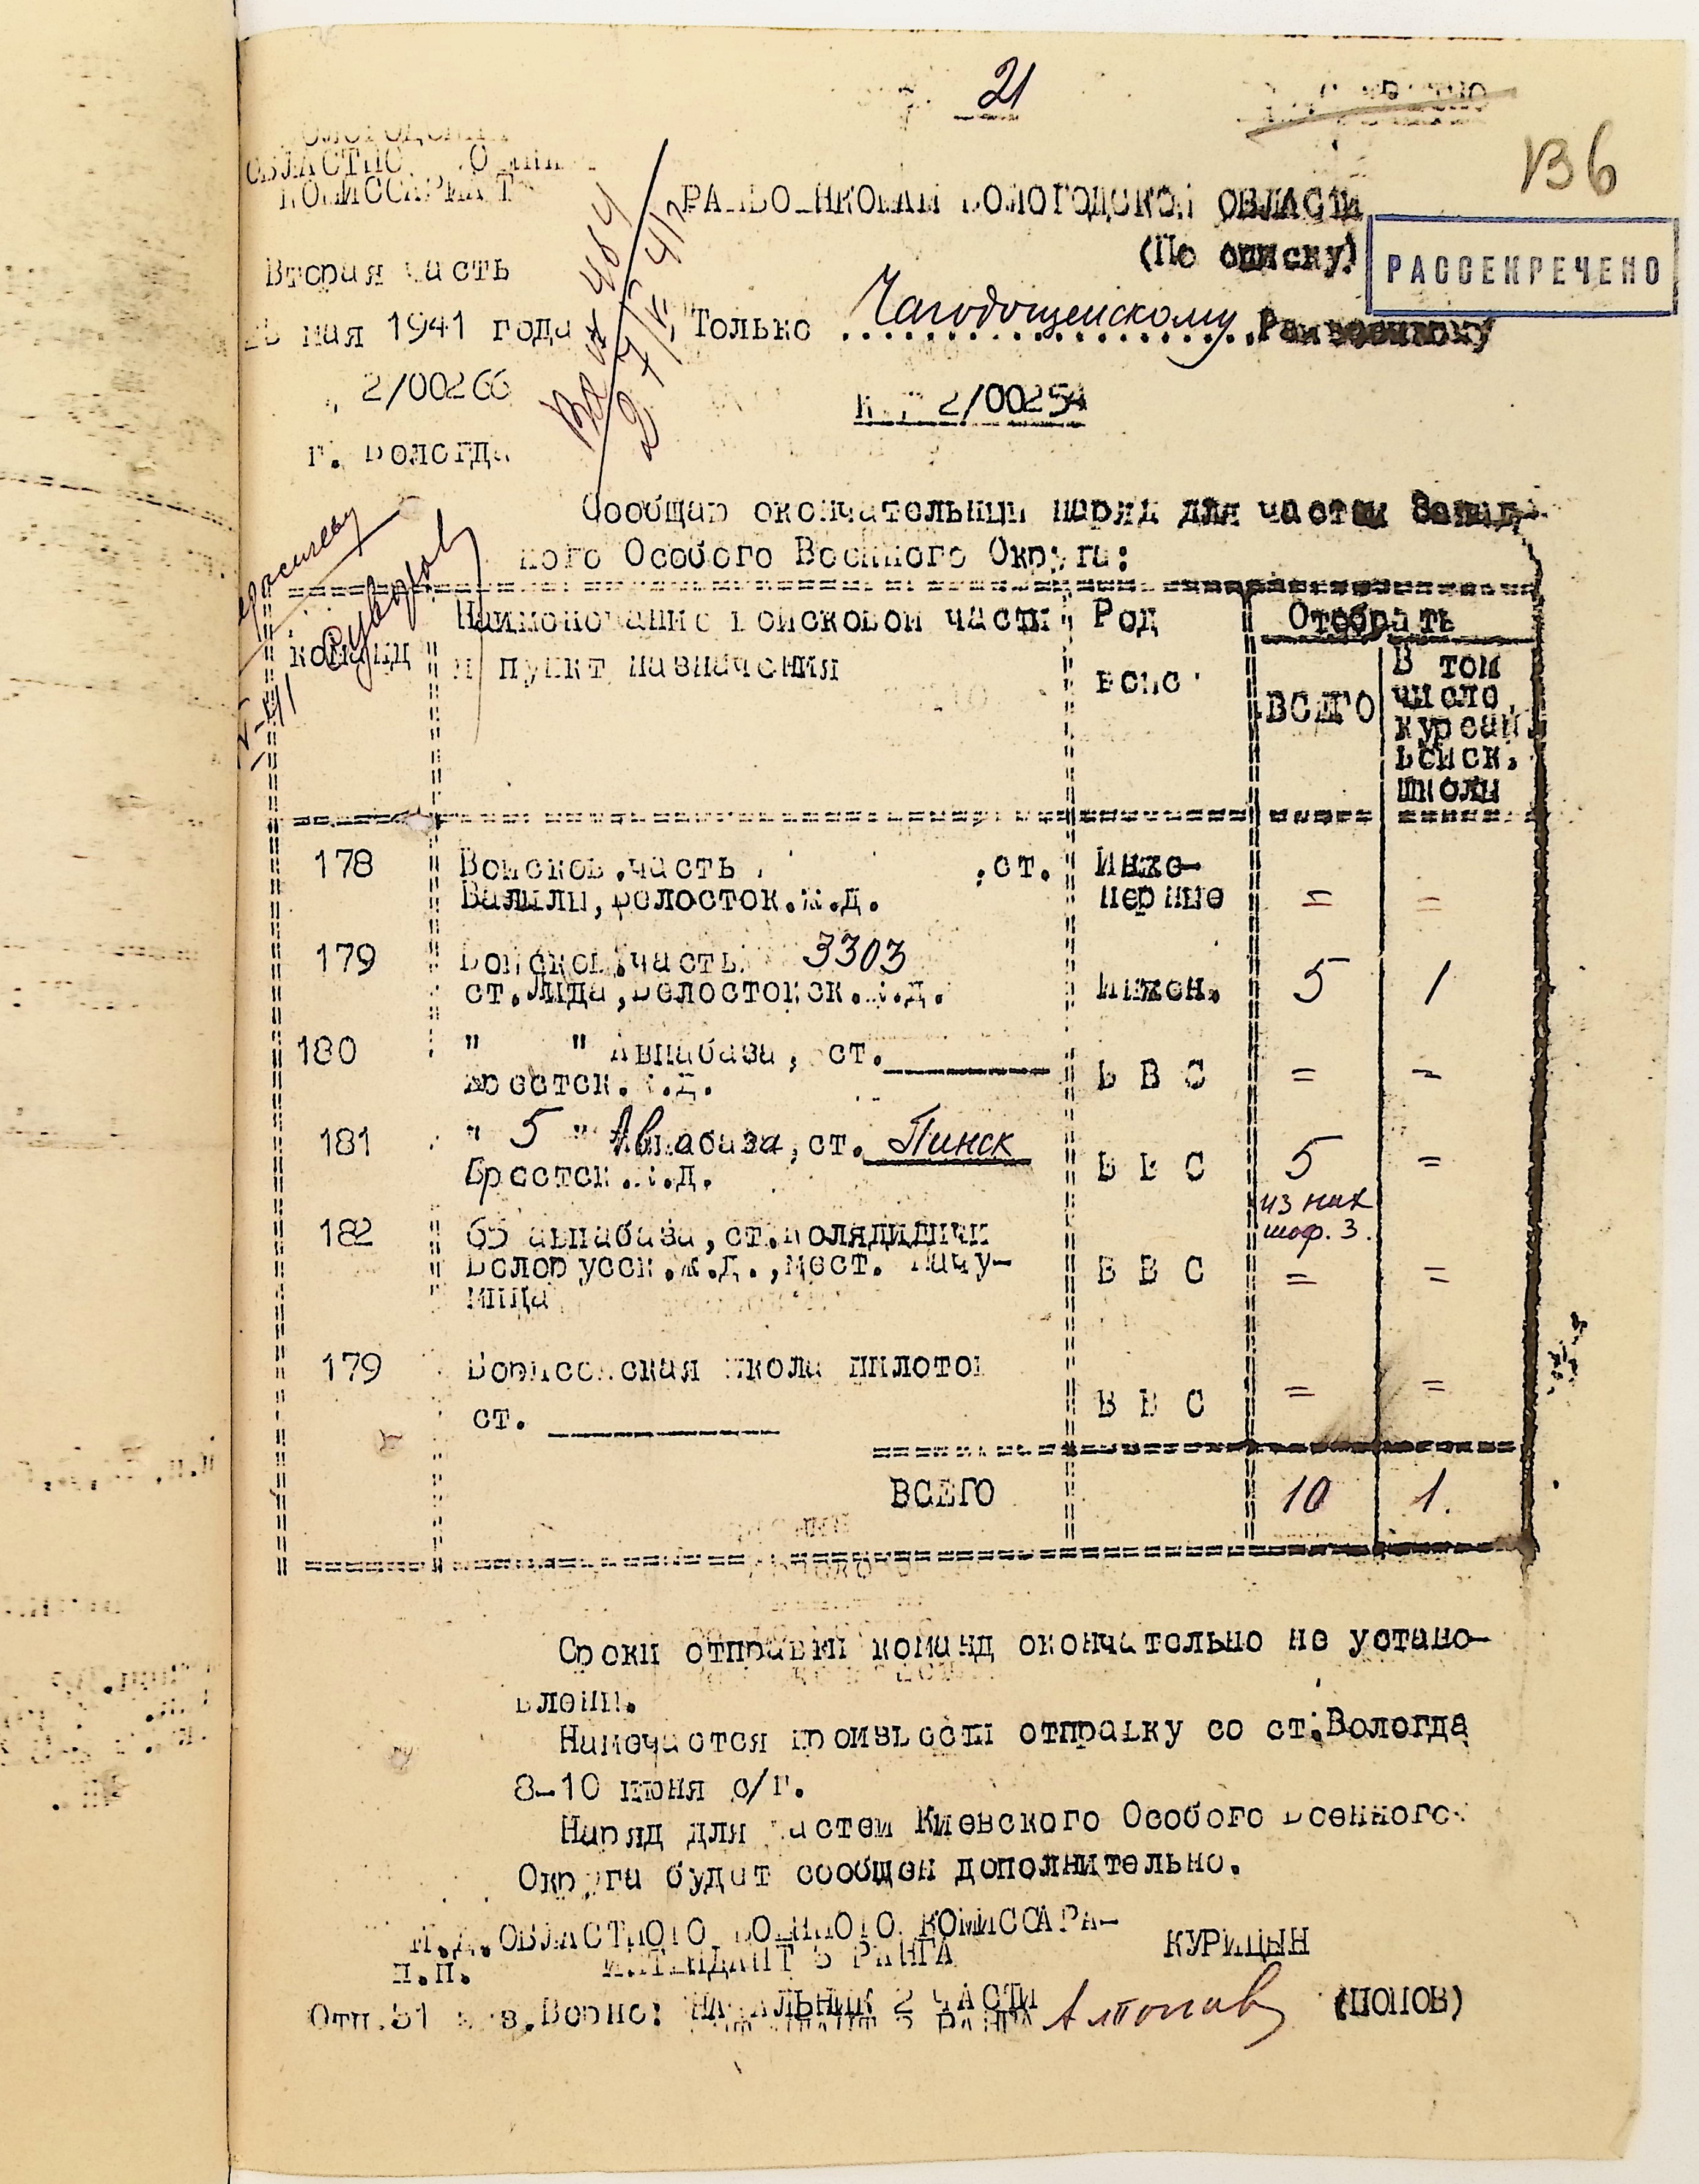 21
В6
ОБЛАСТНО
КОМИССАРИАТ
РАЙВОЕНКОМАМ ВОЛОГОДСКОЙ ОБЛАСТИ
(По списку)
РАССЕКРЕЧЕНО
Вторая часть
мая 1941 года
Только Чагодощенскому Райвоенкому
2/00266
К № 2/00254
г. Вологда
Сообщаю окончательный наряд для частей Запад-
ного Особого Военного Округа:
Суворов
команд
Наименование войсковой части
и пункт назначения
Род
войс
Отобрать
ВСЕГО
В том
числе
курсан
войск.
школы
178
Войсков.часть .ст.
Валилы, Белосток.ж.д.
Инже-
нерные
=
=
179
Войсков.часть 3303
ст.Лида, Белостокск.ж.д.
Инжен.
5
1
180
" " Авиабаза, ст.
Брестск.ж.д.
В В С
=
=
181
" 5 " Авиабаза, ст. Пинск
Брестск.ж.д.
В В С
5
из них
шоф. 3.
=
182
65 авиабаза, ст.Колядичи
Белорусск.ж.д.,мест. Мачу-
лища
В В С
=
=
179
Борисовская школа пилотов
ст.
В В С
=
=
ВСЕГО
10
1.
Сроки отправки команд окончательно не устано-
влены.
Намечается произвести отправку со ст.Вологда
8-10 июня с/г.
Наряд для частей Киевского Особого Военного
Округа будет сообщен дополнительно.
И.Д. ОБЛАСТНОГО ВОЕННОГО КОМИССАРА-
п.п. ИНТЕНДАНТ 3 РАНГА КУРИЦЫН
Отп.31 экз. Верно: НАЧАЛЬНИК 2 ЧАСТИ
(ПОПОВ)